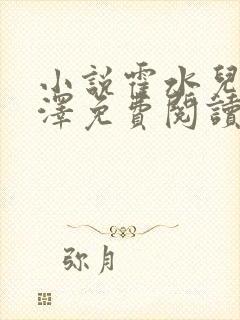 小說霍水兒
澤免費閱讀
弥月